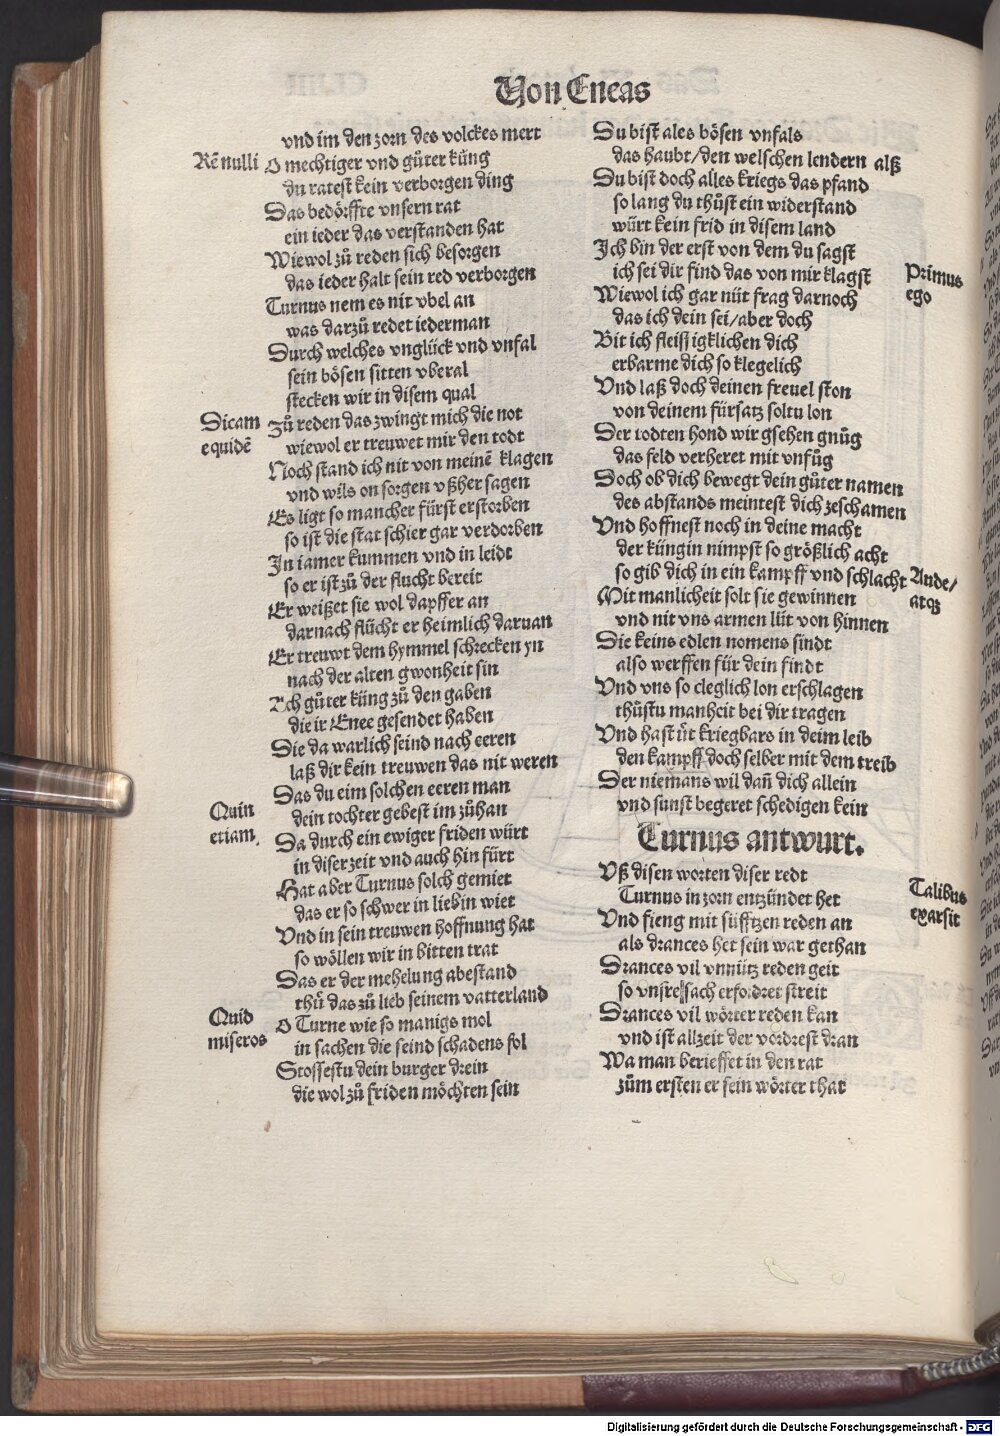 Von Eneas
vnd im den zorn des volckes mert
Rē nulli
O mechtiger vnd gůter küng
du ratest kein verborgen ding
Das bedörffte vnsern rat
ein ieder das verstanden hat
Wiewol zů reden sich besorgen
das ieder halt sein red verborgen
Turnus nem es nit vbel an
was darzů redet iederman
Durch welches vnglück vnd vnfal
sein bösen sitten vberal
stecken wir in disem qual
Dicam equidē
Zů reden das zwingt mich die not
wiewol er treuwet mir den todt
Noch stand ich nit von meinē klagen
vnd wils on sorgen vßher sagen
Es ligt so mancher fürst erstorben
so ist die stat schier gar verdorben
In iamer kummen vnd in leidt
so er ist zů der flucht bereit
Er weißet sie wol dapffer an
darnach flücht er heimlich daruan
Er treuwt dem hymmel schrecken yn
nach der alten gwonheit sin
Ach gůter küng zů den gaben
die ir Enee gesendet haben
Die da warlich seind nach eeren
laß dir kein treuwen das nit weren
Das du eim solchen eeren man
Quin etiam.
dein tochter gebest im zůhan
Da durch ein ewiger friden würt
in diser zeit vnd auch hin fürt
Hat aber Turnus solch gemiet
das er so schwer in liebin wiet
Vnd in sein treuwen hoffnung hat
so wöllen wir in bitten trat
Das er der mehelung abestand
thů das zů lieb seinem vatterland
Quid miseros
O Turne wie so manigs mol
in sachen die seind schadens fol
Stossestu dein burger drein
die wol zů friden möchten sein
Du bist ales bösen vnfals
das haubt/den welschen lendern alß
Du bist doch alles kriegs das pfand
so lang du thůst ein widerstand
würt kein frid in disem land
Ich bin der erst von dem du sagst
Primus ego
ich sei dir find das von mir klagst
Wiewol ich gar nüt frag darnoch
das ich dein sei/aber doch
Bit ich fleissigklichen dich
erbarme dich so klegelich
Vnd laß doch deinen freuel ston
von deinem fürsatz soltu lon
Der todten hond wir gsehen gnůg
das feld verheret mit vnfůg
Doch ob dich bewegt dein gůter namen
des abstands meintest dich zeschamen
Vnd hoffnest noch in deine macht
der küngin nimpst so größlich acht
so gib dich in ein kampff vnd schlacht
Aude/ atqꝫ
Mit manlicheit solt sie gewinnen
vnd nit vns armen lüt von hinnen
Die keins edlen nomens sindt
also werffen für dein findt
Vnd vns so cleglich lon erschlagen
thůstu manheit bei dir tragen
Vnd hast üt kriegbars in deim leib
den kampff doch selber mit dem treib
Der niemans wil dañ dich allein
vnd sunst begeret schedigen kein
Turnus antwurt.
Vß disen worten diser redt
Talibus exarsit
Turnus in zorn entzündet het
Vnd fieng mit süfftzen reden an
als drances het sein war gethan
Drances vil vnnütz reden geit
so vnsre sach erfordret streit
Drances vil wörter reden kan
vnd ist allzeit der vordrest dran
Wa man berieffet in den rat
zům ersten er sein wörter that
Digitalisierung gefördert durch die Deutsche Forschungsgemeinschaft - DFG